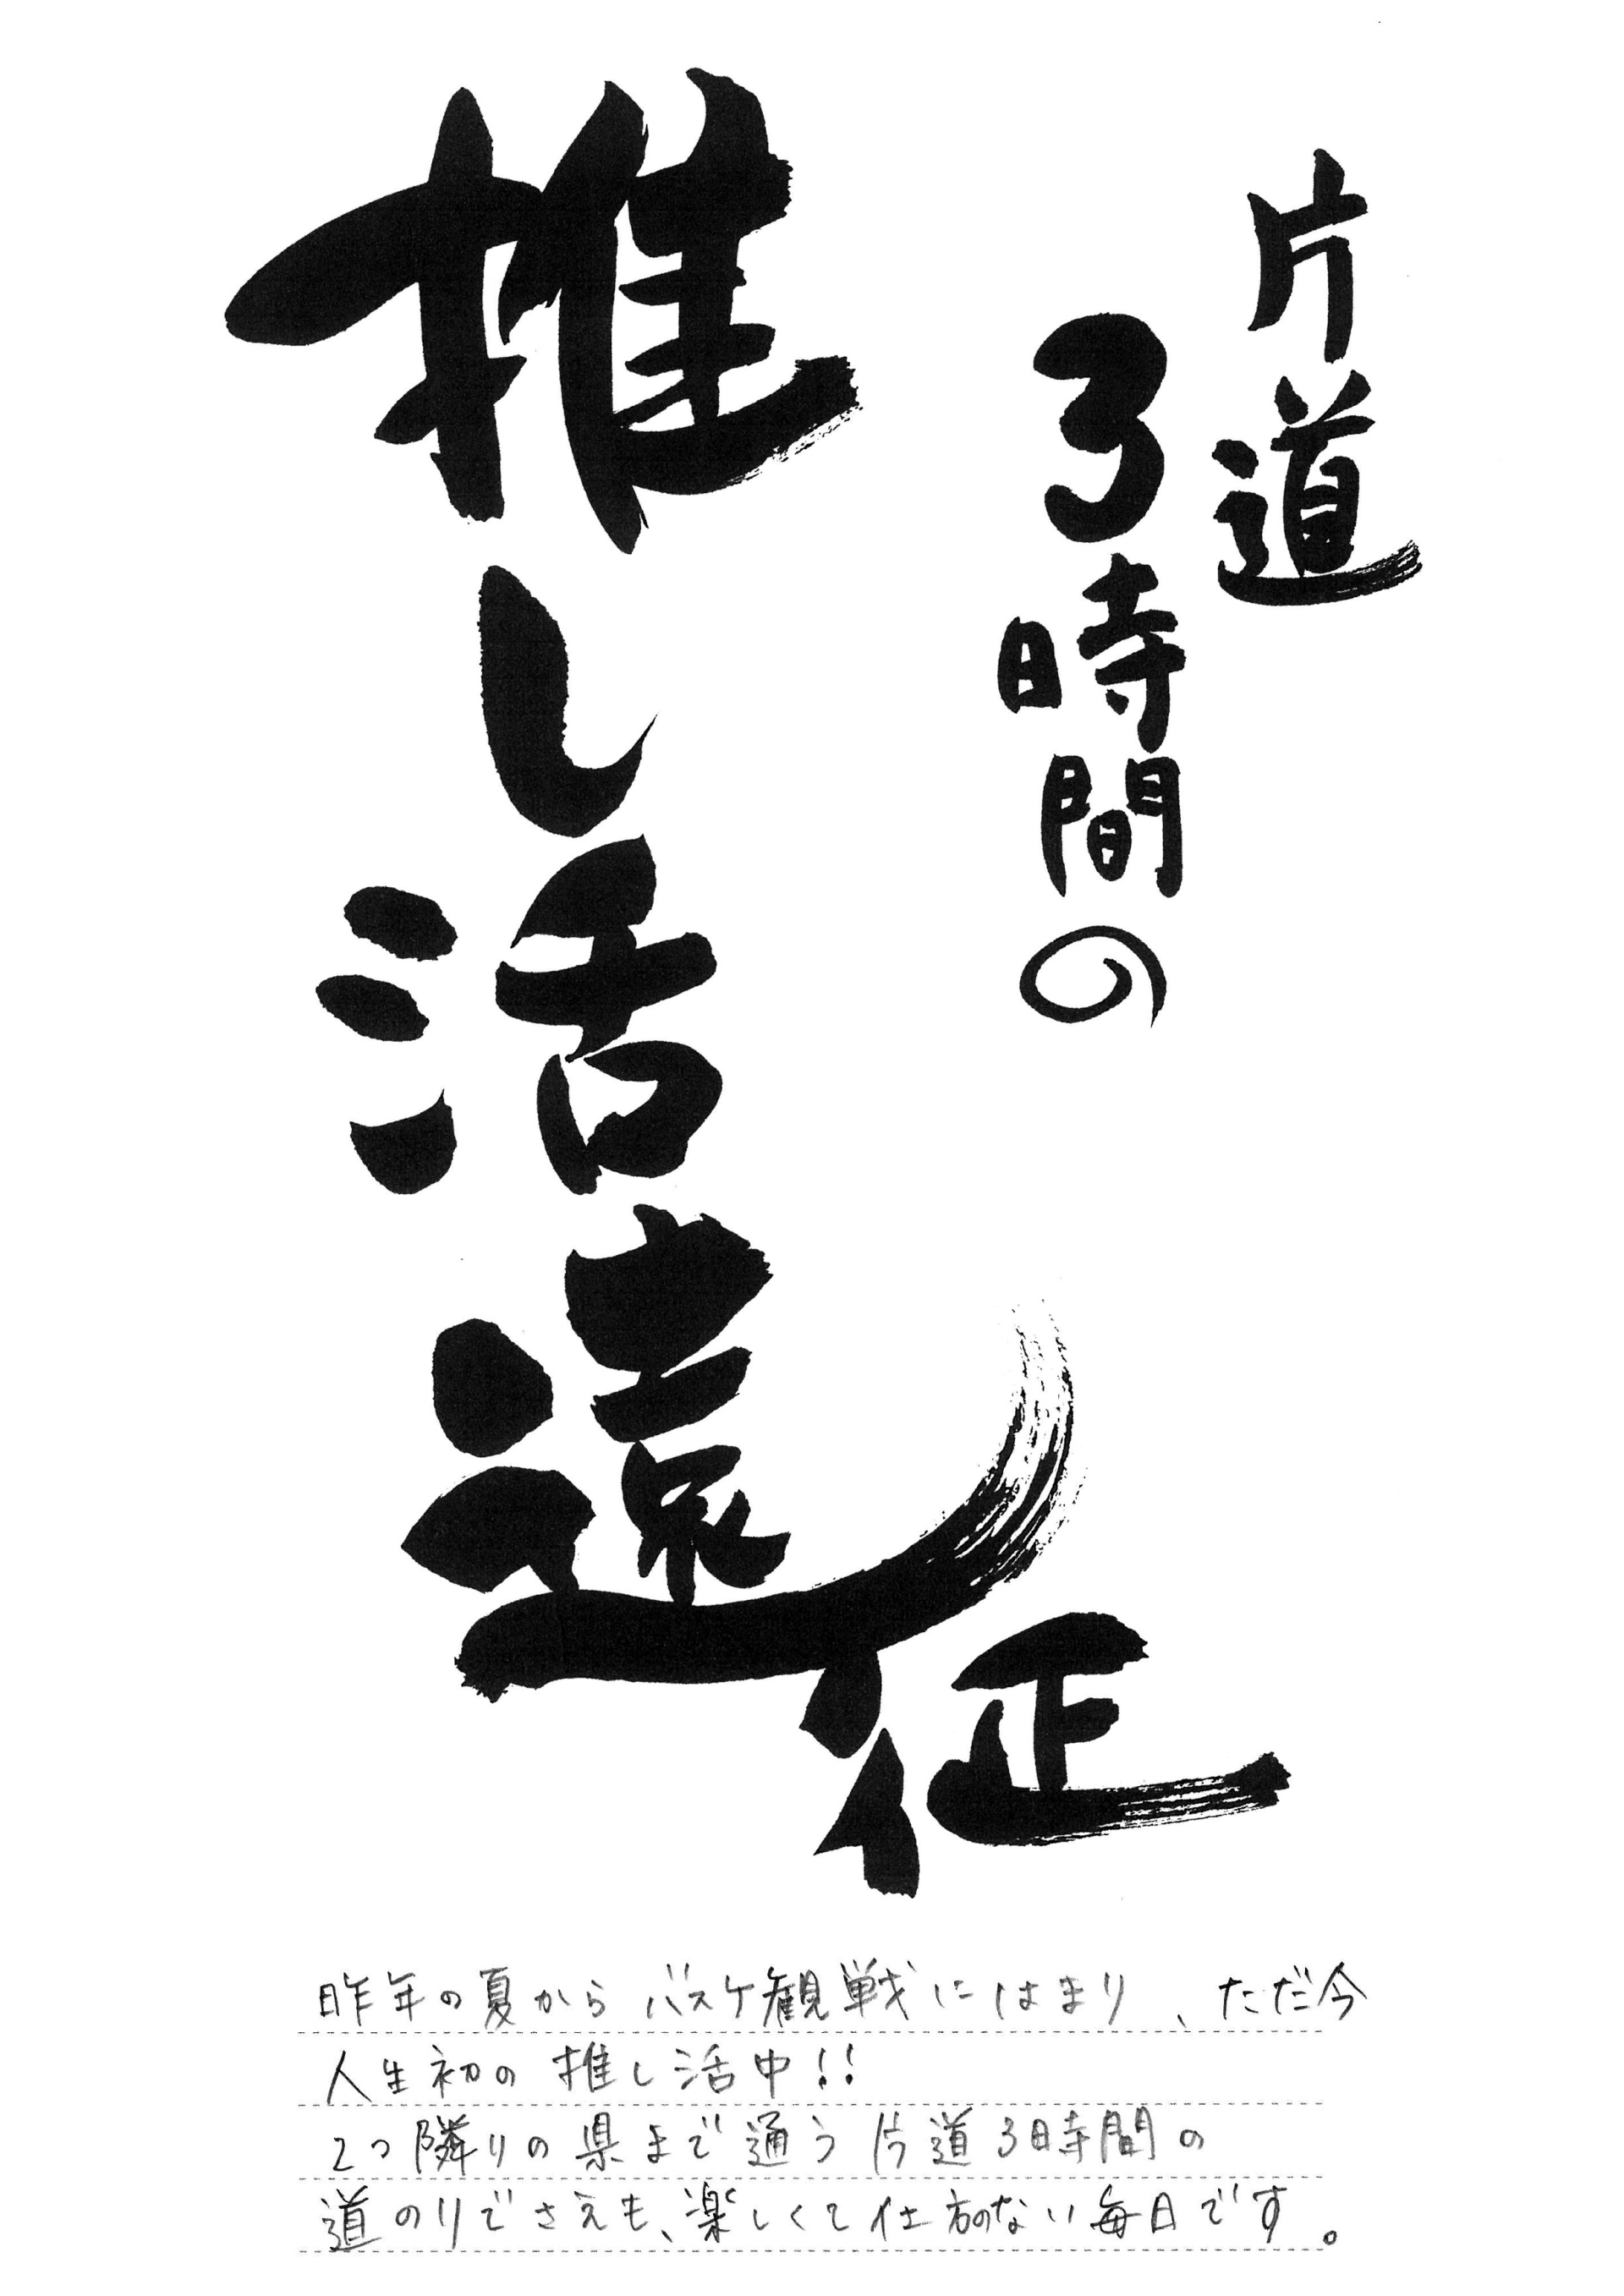 片道
3時間の
推し活遠征
昨年の夏からバスケ観戦にはまり、ただ今
人生初の推し活中!!
2つ隣りの県まで通う片道3時間の
道のりでさえも、楽しくて仕方のない毎日です。